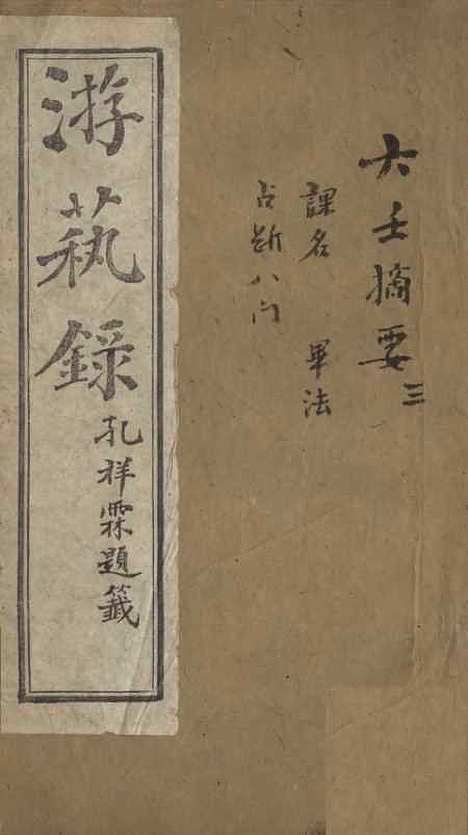 大壬摘要 三
課名 畢法
占断八门
游蓺錄
孔祥霖題籤